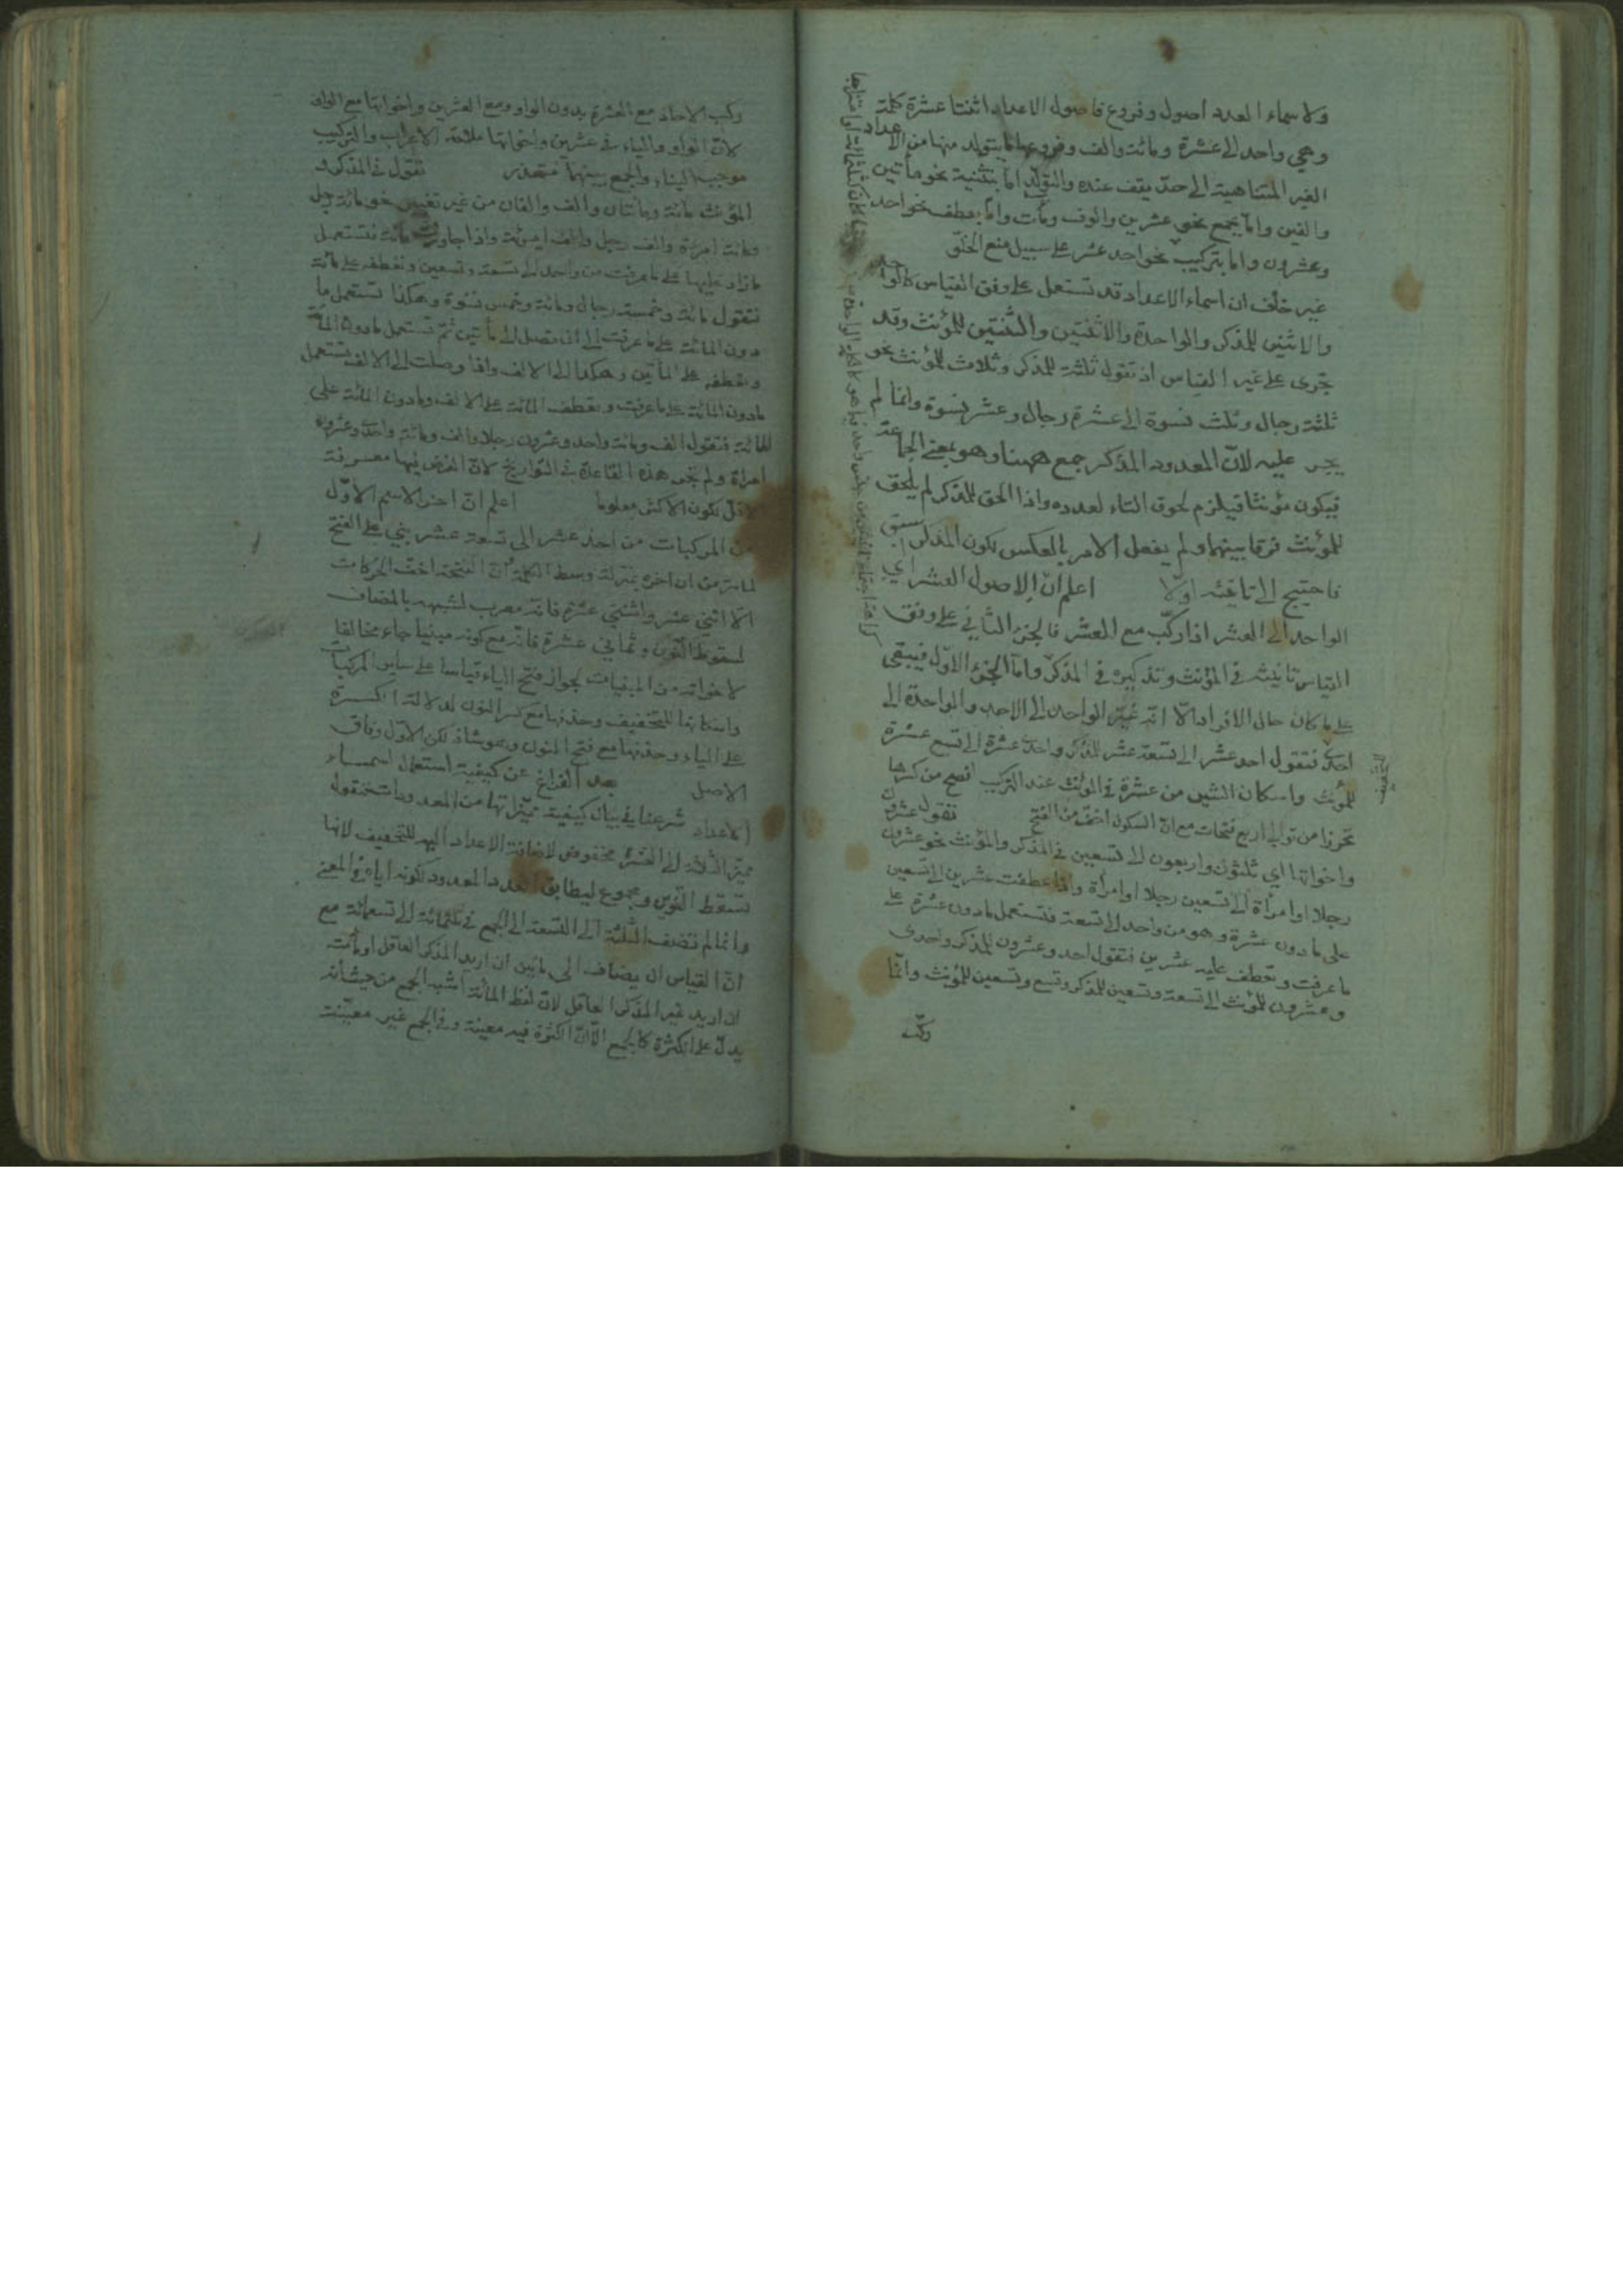 ولاسماء العدد اصول وفروع فاصول الاعداد اثنتا عشرة كلمة
وهي واحد الى عشرة ومائة والف وفروعها ما يتولد منها من الاعداد
الغير المتناهية الى حدّ يقف عنده والتولّد امّا بتثنية نحو مأتين
والفين وامّا بجمع نحو عشرين والوف ومأت وامّا بعطف نحو احد
وعشرون واما بتركيب نحو احد عشر على سبيل منع الخلوّ
غير خلف ان اسماء الاعداد قد تستعمل على وفق القياس كالواحد
والاثنين للمذكر والواحدة والاثنتين والثنتين للمؤنث وقد
تجرى على غير القياس اذ تقول ثلثة للمذكر وثلاث للمؤنث نحو
ثلثة رجال وثلث نسوة الى عشرة رجال وعشر نسوة وانما لم
يجر عليه لانّ المعدود المذكر جمع ههنا وهو بمعنى الجماعة
فيكون مؤنثا فيلزم لحوق التاء لعدده واذا الحق للمذكر لم يلحق
للمؤنث فرقا بينهما ولم يفعل الامر بالعكس لكون المذكر اسبق
فاحتيج الى تانيثه اولا اعلم انّ الاصول العشر اي
الواحد الى العشر اذا ركّب مع العشر فالجزء الثاني على وفق
القياس تانيثه في المؤنث وتذكيره في المذكر وامّا الجزء الاوّل فيبقى
على ما كان حال الافراد الّا انّه غيّر الواحد الى الاحد والواحدة الى
احدى فتقول احد عشر الى تسعة عشر للمذكر واحدى عشرة الى تسع عشرة
للمؤنث واسكان الشين من عشرة في المؤنث عند التركيب افصح من كسرها
تحرزا من توالي اربع فتحات مع انّ السكون اخفّ من الفتح تقول عشرون
واخواتها اي ثلثون واربعون الى تسعين في المذكر والمؤنث نحو عشرون
رجلا او امرأة الى تسعين رجلا او امرأة واذا عطفت عشرين الى تسعين
على ما دون عشرة وهو من واحد الى تسعة فتستعمل ما دون عشرة على
ما عرفت وتعطف عليه عشرين فتقول احد وعشرون للمذكر واحدى
وعشرون للمؤنث الى تسعة وتسعين للمذكر وتسع وتسعين للمؤنث وانّما
ركّب
ركب الاحاد مع العشرة بدون الواو ومع العشرين واخواتها مع الواو
لانّ الواو والياء في عشرين واخواتها علامة الاعراب والتركيب
موجب البناء والجمع بينهما متعذر تقول في المذكر و
المؤنث مائة ومائتان والف والفان من غير تغيير نحو مائة رجل
ومائة امرأة والف رجل والف امرئة واذا جاوزت مائة فتستعمل
ما زاد عليها على ما عرفت من واحد الى تسعة وتسعين وتعطفه على مائة
فتقول مائة وخمسة رجال ومائة وخمس نسوة وهكذا تستعمل ما
دون المائة على ما عرفت الى ان تصل الى مأتين ثمّ تستعمل ما دون المائة
وتعطفه على المأتين وهكذا الى الالف واذا وصلت الى الالف تستعمل
ما دون المائة على ما عرفت وتعطف المائة على الالف وما دون المائة على
المائة فتقول الف ومائة واحد وعشرون رجلا والف ومائة واحدى وعشرون
امرأة ولم تجر هذه القاعدة في التواريخ لانّ الغرض فيها معرفة
الاقلّ لكون الاكثر معلوما اعلم انّ اخر الاسم الاوّل
من المركبات من احد عشر الى تسعة عشر بني على الفتح
لما مرّ من ان اخره بمنزلة وسط الكلمة وانّ الفتحة اخفّ الحركات
الّا اثني عشر واثنتي عشرة فانّه معرب لشبهه بالمضاف
لسقوط النّون وثماني عشرة فانّه مع كونه مبنيا جاء مخالفا
لاخواته من المبنيات لجواز فتح الياء قياسا على سائر المركبات
واسكانها للتخفيف وحذفها مع كسر النون لدلالة الكسرة
على الياء وحذفها مع فتح النون وهو شاذ لكن الاوّل وفاق
الاصل بعد الفراغ عن كيفية استعمال اسماء
الاعداد شرعنا في بيان كيفية مميّزاتها من المعدودات فنقول
مميّز الثلثة الى العشرة مخفوض لاضافة الاعداد اليه للتخفيف لانها
تسقط التنوين ومجموع ليطابق العدد المعدود لكونه اياه في المعنى
وانما لم تضف الثلثة الى التسعة الى الجمع في ثلثمائة الى تسعمائة مع
انّ القياس ان يضاف الى مائين ان اريد المذكر العاقل او مأت
ان اريد غير المذكر العاقل لانّ لفظ المائة اشبه الجمع من حيث أنّه
يدلّ على الكثرة كالجمع الّا انّ الكثرة فيه معينة وفي الجمع غير معيّنة